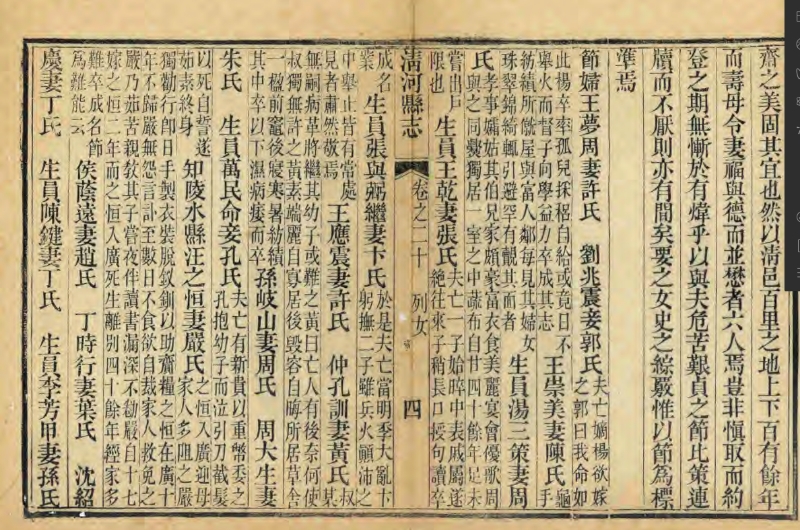 齋之美固其宜也然以淸邑百里之地上下百有餘年
而壽母令妻福與德而並懋者六人焉豈非愼取而約
登之期無慚於有煒乎以與夫危苦艱貞之節比策連
牘而不厭則亦有間矣要之女史之綜覈惟以節爲標
準焉
節婦王夢周妻許氏 劉兆震妾郭氏
夫亡嫡楊欲嫁
之郭曰我命如
此楊卒率孤兒採稆自給或竟日不
舉火而督子向學益力卒成其志
王崇美妻陳氏
龜
手
紡績所僦屋與富人鄰每見其婦女
珠翠錦綺輒引避罕有覿其面者
生員湯三策妻周
氏
孝事孀姑其伯兄家頗豪富衣食美麗宴會優歡周
與之同爨獨居一室之中蔬布自甘四十餘年足未
嘗出戶
限也
生員王乾妻張氏
夫亡一子始晬中表戚屬遂
絶往來子稍長口授句讀卒
淸河縣志 卷之二十 列女 四
成名
業
生員張與弼繼妻卞氏
於是夫亡當明季大亂卞
躬撫二子雖兵火顚沛之
中舉止皆有常處
見者肅然敬焉
王應震妻許氏 仲孔訓妻黃氏
叔
某
無嗣病革將繼其幼子或難之黃曰亡人有後奈何使
叔獨無許之黃素端麗自寡居後毀容自晦所居草舍
一楹前竈後寢寒暑紡績
其中卒以下濕病痿而卒
孫岐山妻周氏 周大生妻
朱氏 生員萬民命妾孔氏
夫亡有新貴以重幣委之
孔抱幼子而泣引刀截髮
以死自誓遂
茹素終身
知陵水縣汪之恒妻嚴氏
之恒入廣迎母
家人多阻之嚴
獨勸行卽日手製衣裝脫釵釧以助齎糧之恒在廣十
年不歸嚴無怨言訃至數日不食欲自裁家人救免之
嚴乃茹苦親敎其子嘗夜伴讀書漏深不勌嚴自十七
嫁之恒二年而之恒入廣死生離別四十餘年經家多
難卒成名節
爲難能云
侯蔭遠妻趙氏 丁時行妻葉氏 沈紹
慶妻丁氏 生員陳鍵妻丁氏 生員李芳甲妻孫氏